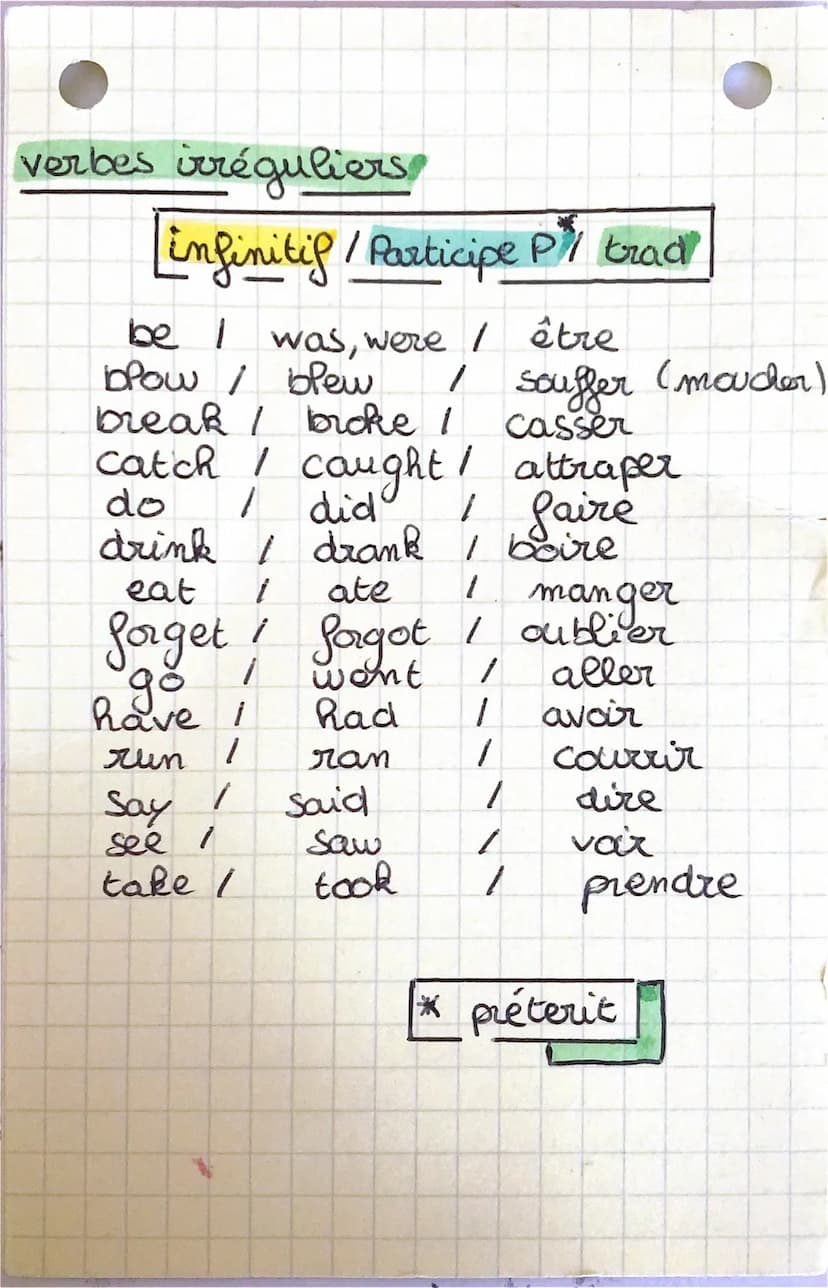 verbes irréguliers
infinitif / Participe P* / trad
be / was, were / être
blow / blew / souffer (moucher)
break / broke / casser
catch / caught / attraper
do / did / faire
drink / drank / boire
eat / ate / manger
forget / forgot / oublier
go / went / aller
have / had / avoir
run / ran / courrir
say / said / dire
see / saw / voir
take / took / prendre
* préterit